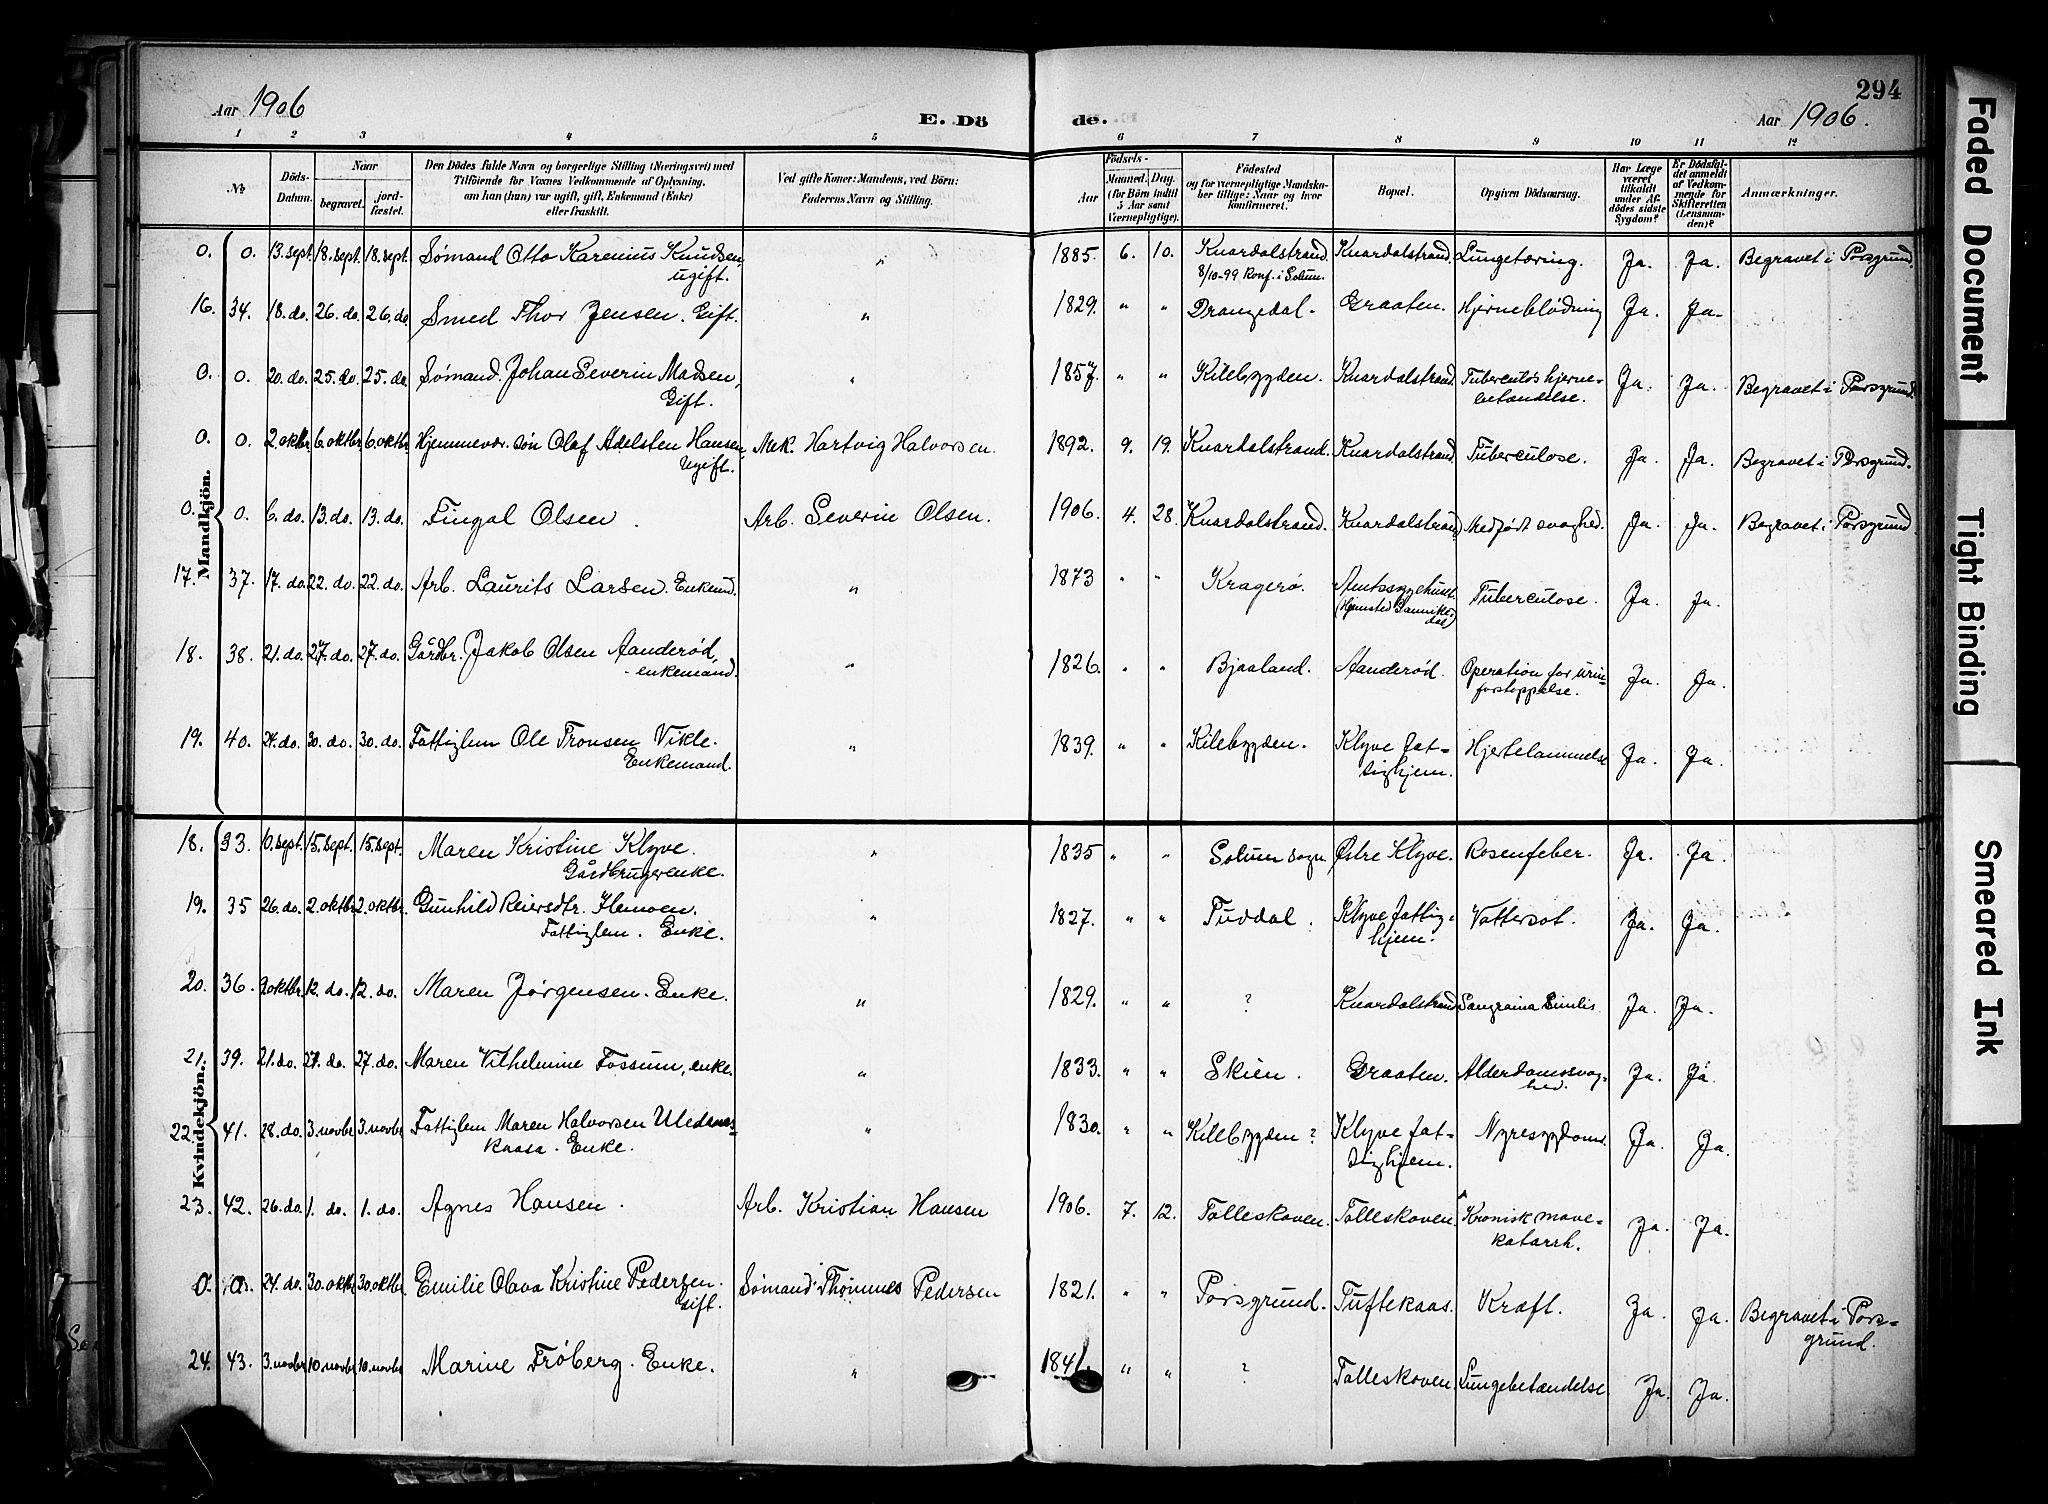 294
Aar 1906
E. Dö
de.
Aar 1906.
1 2 3 4 5 6 7 8 9 10 11 12
No
Döds-Datum.
Naar
begravet.
jord-fæstet.
Den Dödes fulde Navn og borgerlige Stilling (Næringsvei) med
Tilföiende for Voxnes Vedkommende af Oplysning,
om han (hun) var ugift, gift, Enkemand (Enke)
eller fraskilt.
Ved gifte Koner: Mandens, ved Börn:
Faderens Navn og Stilling.
Aar
Födsels-
Maaned. Dag.
(for Börn indtil
5 Aar samt
Værnepligtige).
Födested
og for værnepligtige Mandska-
ber tillige: Naar og hvor
konfirmeret.
Bopæl.
Opgiven Dödsaarsag.
Har Læge
været
tilkaldt
under Af-
dödes sidste
Sygdom?
Er Dödsfal-
det anmeldt
af Vedkom-
mende for
Skifteretten
(Lensman-
den)?
Anmærkninger.
Mandkjön.
0. 0. 13. sept. 18. sept. 18. sept. Sømand Otto Karenius Knudsen, " 1885. 6. 10. Knardalstrand. Knardalstrand. Lungetæring. Ja. Ja. Begravet i Porsgrund.
ugift. 8/10-99 Konf. i Solum.
16. 34. 18. do. 26. do. 26. do. Smed Thor Jensen. Gift. " 1829. " " Drangedal. Graaten. Hjerneblødning Ja. Ja.
0. 0. 20. do. 25. do. 25. do. Sømand. Johan Severin Madsen, " 1857. " " Kilebygden. Knardalstrand. Tuberculøs hjerne- Ja. Ja. Begravet i Porsgrund.
Gift. betændelse.
0. 0. 2. oktbr. 6. oktbr. 6. oktbr. Hjemmevær. søn Olaf Adelsten Hansen, Mek. Hartvig Halvorsen. 1892. 9. 19. Knardalstrand. Knardalstrand. Tuberculose. Ja. Ja. Begravet i Porsgrund.
Ugift.
0. 0. 6. do. 13. do. 13. do. Fingal Olsen. Arb. Severin Olsen. 1906. 4. 28. Knardalstrand. Knardalstrand Medfødt svaghed. Ja. Ja. Begravet i Porsgrund.
17. 37. 17. do. 22. do. 22. do. Arb. Laurits Larsen. Enkemd. " 1873 " " Kragerø. Amtssygehuset. Tuberculose. Ja. Ja.
(Hjemsted
18. 38. 21. do. 27. do. 27. do. Gårdbr. Jakob Olsen Aanderød, " 1826. " " Bjaaland. Aanderød. Operation for urin- Ja. Ja.
enkemand. forstoppelse.
19. 40. 24. do. 30. do. 30. do. Fattiglem Ole Tronsen Vikle. " 1839. " " Kilebygden. Klyve fat- Hjertelammelse Ja. Ja.
Enkemand. tighjem.
Kvindekjön.
18. 33. 10. sept. 15. sept. 15. sept. Maren Kristine Klyve. " 1835 " " Solum sogn Østre Klyve. Rosenfeber. Ja. Ja.
Gårdbrugerenke.
19. 35 26. do. 2. oktbr. 2. oktbr. Gunhild Reiersdtr. Hemoen. " 1827. " " Tuddal. Klyve fattig- Vattersot. Ja. Ja.
Fattiglem. Enke. hjem.
20. 36. 9. oktbr. 12. do. 12. do. Maren Jørgensen. Enke. " 1829. " " ? Knardalstrand Ja. Ja.
21. 39. 21. do. 27. do. 27. do. Maren Vilhelmine Fossum, enke. " 1833. " " Skien. Graaten. Alderdomssvag- Ja. Ja.
hed.
22. 41. 28. do. 3. novbr 3. novbr Fattiglem Maren Halvorsen " 1830. " " Kilebygden? Klyve fat- Nyresygdom. Ja. Ja.
kaasa. Enke. tighjem.
23. 42. 26. do. 1. do. 1. do. Agnes Hansen. Arb. Kristian Hansen 1906. 7. 12. Tolleskoven. Tolleskoven. Kronisk mave- Ja. Ja.
katarrh.
0. 0. 24. do. 30. oktbr. 30. oktbr. Emilie Olava Kristine Pedersen. Sømand Thommes Pedersen 1821. " " Porsgrund. Tuftekaas. Kræft. Ja. Ja. Begravet i Pors-
Gift. grund.
24. 43. 3. novbr 10. novbr 10. novbr Marine Frøberg. Enke. " " " ? Tolleskoven. Lungebetændelse. Ja. Ja.
Faded Document
Tight Binding
Smeared Ink